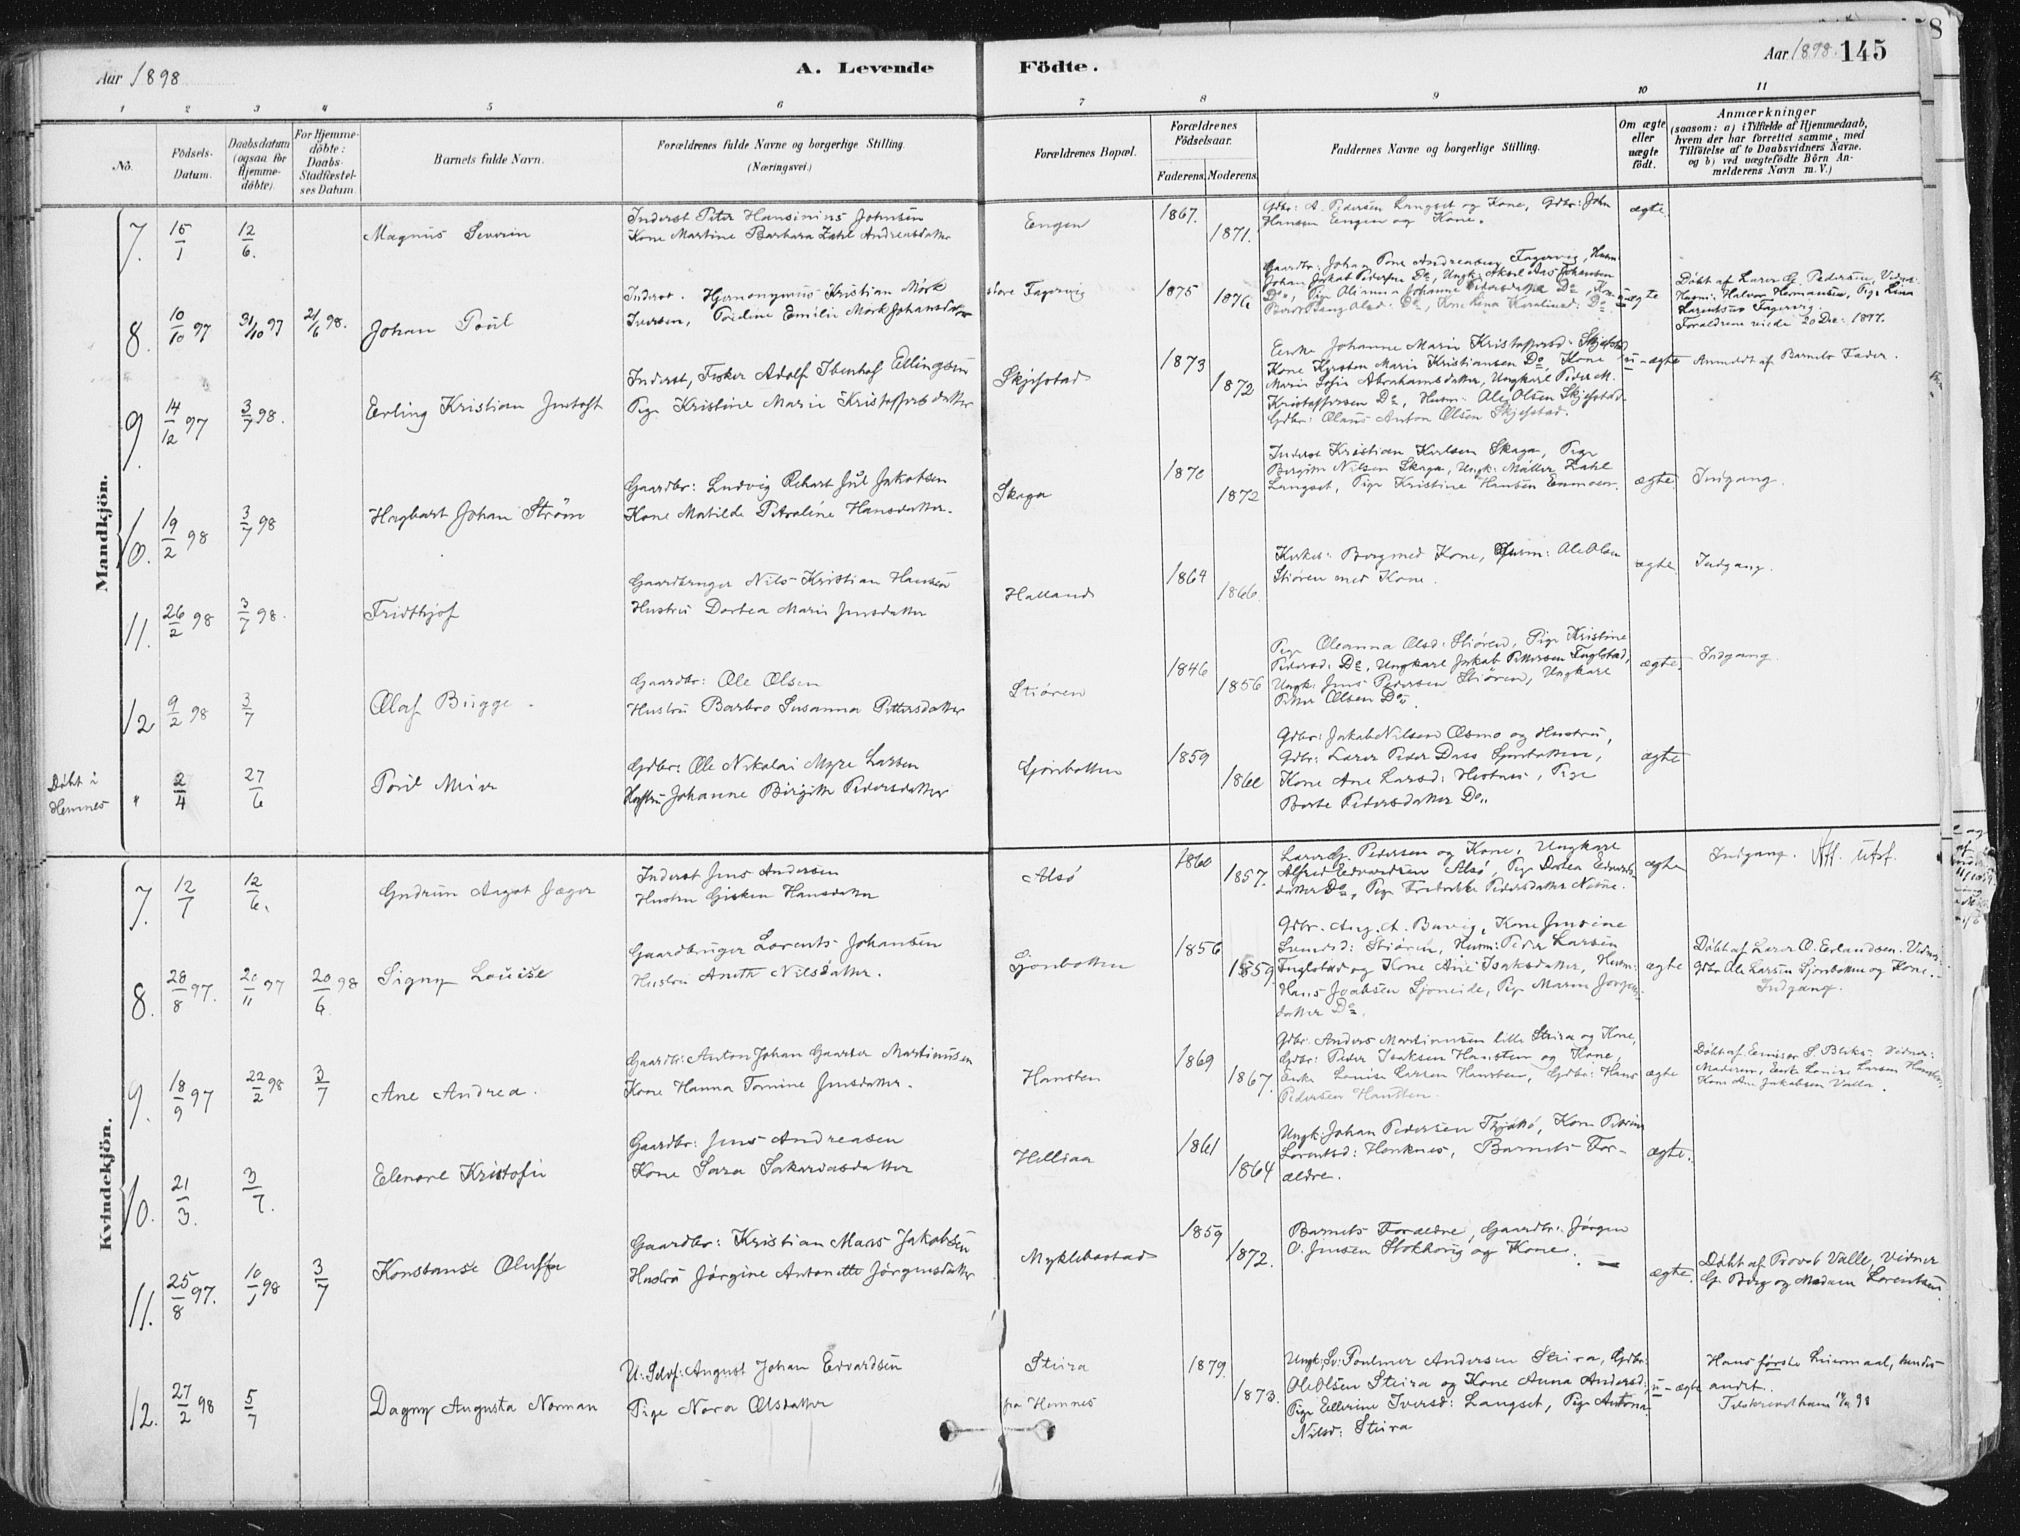 Aar 1898
A. Levende
Födte.
Aar 1898. 145
1 2 3 4 5 6 7 8 9 10 11
No.
Födsels-Datum.
Daabsdatum (ogsaa for Hjemme-döbte).
For Hjemme-döbte: Daabs-Stadfæstel-ses Datum.
Barnets fulde Navn.
Forældrenes fulde Navne og borgerlige Stilling. (Næringsvei.)
Forældrenes Bopæl.
Forældrenes Födselsaar.
Faderens. Moderens.
Faddernes Navne og borgerlige Stilling.
Om ægte eller uægte födt.
Anmærkninger
(saasom: a) i Tilfælde af Hjemmedaab, hvem der har forrettet samme, med Tilföielse af to Daabsvidners Navne. og b) ved uægtefödte Börn An-melderens Navn m. V.)
Mandkjön.
7. 15/1 12/6. Magnus Severin
Inderst Peter Hansinius Johnsen
Kone Martine Barbara Zahl Andreasdatter
Engen 1867. 1871.
Gdbr: A. Pedersen Langset og Kone, Gdbr: John
Hansen Engen og Kone.
ægte
8. 10/10 97 31/10 97 21/6 98. Johan Poul
Inderst. Hjeronymus Kristian Mörk
Iversen, Pauline Emilie Mörk Johansdatter
store Fagervig 1875 1876
uægte
Döbt af Lærer G. Pedersen, Vidner:
Husm: Halvor Hermansen, Pige Lina
Larentsen Fagervig.
Forældrene viede 20 Dec. 1897.
9. 14/12 97 3/7 98. Erling Kristian Justoft
Inderst, Fisker Adolf Ibenhof Ellingsen
Pige Kristine Marie Kristoffersdatter
Skjefstad 1873 1872
Enke Johanne Marie Kristoffersd: Skjefstad
Kone Kyrsten Marie Kristiansen Do, Kone
Marie Sofie Abrahamsdatter, Ungkarl Peder M.
Kristoffersen Do, Husm: Ole Olsen Skjefstad
Gdbr: Olaus Anton Olsen Skjefstad.
u-ægte Anmeldt af Barnets Fader.
10. 19/2 98 3/7 98 Hagbart Johan Ström
Gaardbr: Ludvig Rikart Jul Jakobsen
Kone Matilde Petroline Hansdatter.
Skaga 1870 1872
Inderst Kristian Karlsen Skaga, Pige
Birgitte Nilsen Skaga, Ungk: Müller Zahl
Langset, Pige Kristine Hansen Enmoen.
ægte Indgang.
11. 26/2 98 3/7 98. Fridthjof
Gaardbruger Nils Kristian Hansen
Hustru Dortea Marie Jensdatter
Halland 1864 1866.
Kirkes: Borg med Kone, Husm: Ole Olsen
Stiören med Kone.
ægte Indgang.
12 9/2 98 3/7 Olaf Bügge.
Gaardbr: Ole Olsen
Hustru Barbro Susanna Pettersdatter
Stiören 1846 1856
Pige Oleanna Olsd: Stiören, Pige Kristine
Pedersd: Do, Ungkarl Jakob Pettersen Fuglstad,
Ungk: Jens Pedersen Stiören, Ungkarl
Petter Olsen Do.
ægte Indgang.
Döbt i Hemnes
" 2/4 27/6 Poul Meier
Gdbr: Ole Nikolai Myre Larsen
Hustru Johanne Birgitte Pedersdatter
Sjonbotten 1859 1860
Gdbr: Jakob Nilsen Osmo og Hustru,
Gdbr: Lærer Peder Dass Sjonbotten,
Kone Ane Larsd: Hestnes, Pige
Berte Pedersdatter Do
ægte
Kvindekjön.
7. 12/1 12/6. Gudrun Aagot Jæger
Inderst Jens Andersen
Hustru Gisken Hansdatter
Alsö 1860 1857.
Lærer G. Pedersen og Kone, Ungkarl
Alfred Edvardsen Alsö, Pige Dortea Edvards-
datter Do, Pige Fredrikke Pedersdatter
ægte Indgang.
8. 28/8 97. 20/11 97 20/6 98 Signy Louise
Gaardbruger Lorents Johansen
Hustru Anette Nilsdatter.
Sjonbotten 1856 1859.
Gdbr. Aug. A. Buvig, Kone Jensine
Svendsd: Stiören, Husm: Peder Larsen
Fuglstad og Kone Ane Isaksdatter, Husm:
Hans Joabsen Sjoneide, Pige Maren Jörgens-
datter Do.
ægte
Döbt af Lærer O. Erlandsen. Vidner:
Gdbr Ole Larsen Sjonbotten og Kone.
Indgang.
9. 18/9 97 22/2 98 3/7 Ane Andrea.
Gaardbr: Anton Johan Gaarser Martinusen
Kone Hanna Tomine Jensdatter.
Hansten 1869 1867.
Gdbr: Anders Martinusen lille Steira og Kone,
Gdbr: Peder Isaksen Hansten og Kone,
Enke Louise Larsen Hansten, Gdbr: Hans
Pedersen Hansten.
ægte
Döbt af Emissær S. Bleks. Vidner:
Moderen, Enke Louise Larsen Hansten,
Kone Ane Jakobsen Valla.
10. 21/3. 3/7. Elenore Kristofie
Gaardbr: Jens Andreasen
Kone Sara Sakariasdatter
Helliaa 1861 1864
Ungk: Johan Pedersen Thjötö, Kone
Lorentsd: Henknes, Barnets For-
ældre.
ægte.
11. 25/8 97. 10/1 98 3/7 Konstanse Oluffa
Gaardbr: Kristian Maas Jakobsen
Hustru Jörgine Antonette Jörgensdatter
Myklebostad 1859 1872.
Barnets Forældre, Gaardbr: Jörgen
O. Jensen Stokhorig og Kone.
ægte.
Döbt af Provst Valle, Vidner
G. Borg og Madam Lorentsen.
12. 27/2 98 5/7 Dagny Augusta Norman
U: Selvf: August Johan Edvardsen
Pige Nora Olsdatter
Steira
fra Hemnes
1879. 1873.
Ungk: Sv: Poulmer Andersen Steira, Gdbr:
Ole Olsen Steira og Kone Anna Andersd:
Pige Ellerine Iversd: Langset, Pige Antona
Nilsd: Steira
u-ægte
Hans første Leiermaal, hendes
andet.